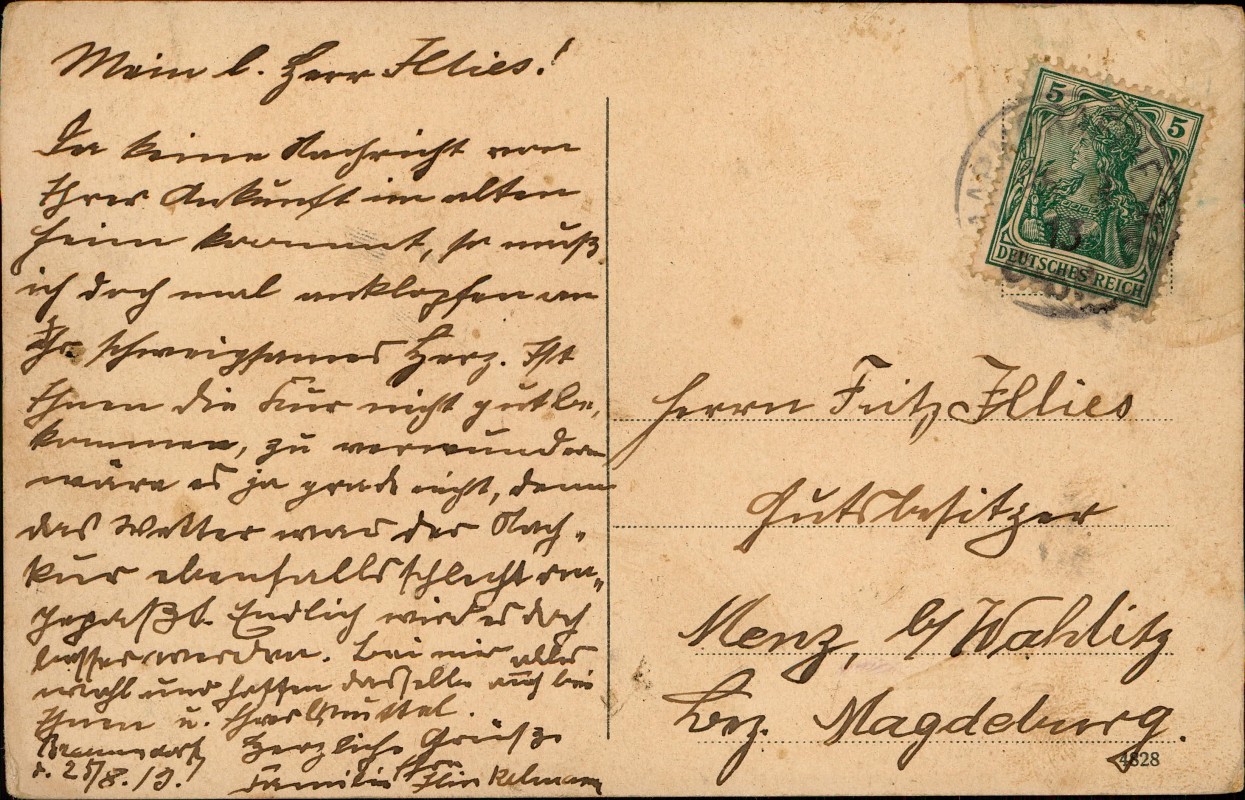 Mein l. Herr Illies!
Da keine Nachricht von
Ihrer Ankunft im alten
Heim kommt, so muß
ich doch mal anklopfen an
Ihr schweigsames Herz. Ist
Ihnen die Kur nicht gut be-
kommen, zu verwundern
wäre es ja grade nicht, denn
das Wetter war der Nach-
kur ebenfalls schlecht an-
gepaßt. Endlich wird es doch
besser werden. Bei mir alles
wohl und hoffen dasselbe auch bei
Ihnen u. Ihrer
d. 25/8.13.
Herzliche Grüße
Familie
5
5
DEUTSCHES REICH
13
Herrn Fritz Illies
Gutsbesitzer
Menz, b/ Wahlitz
Bez. Magdeburg.
4828